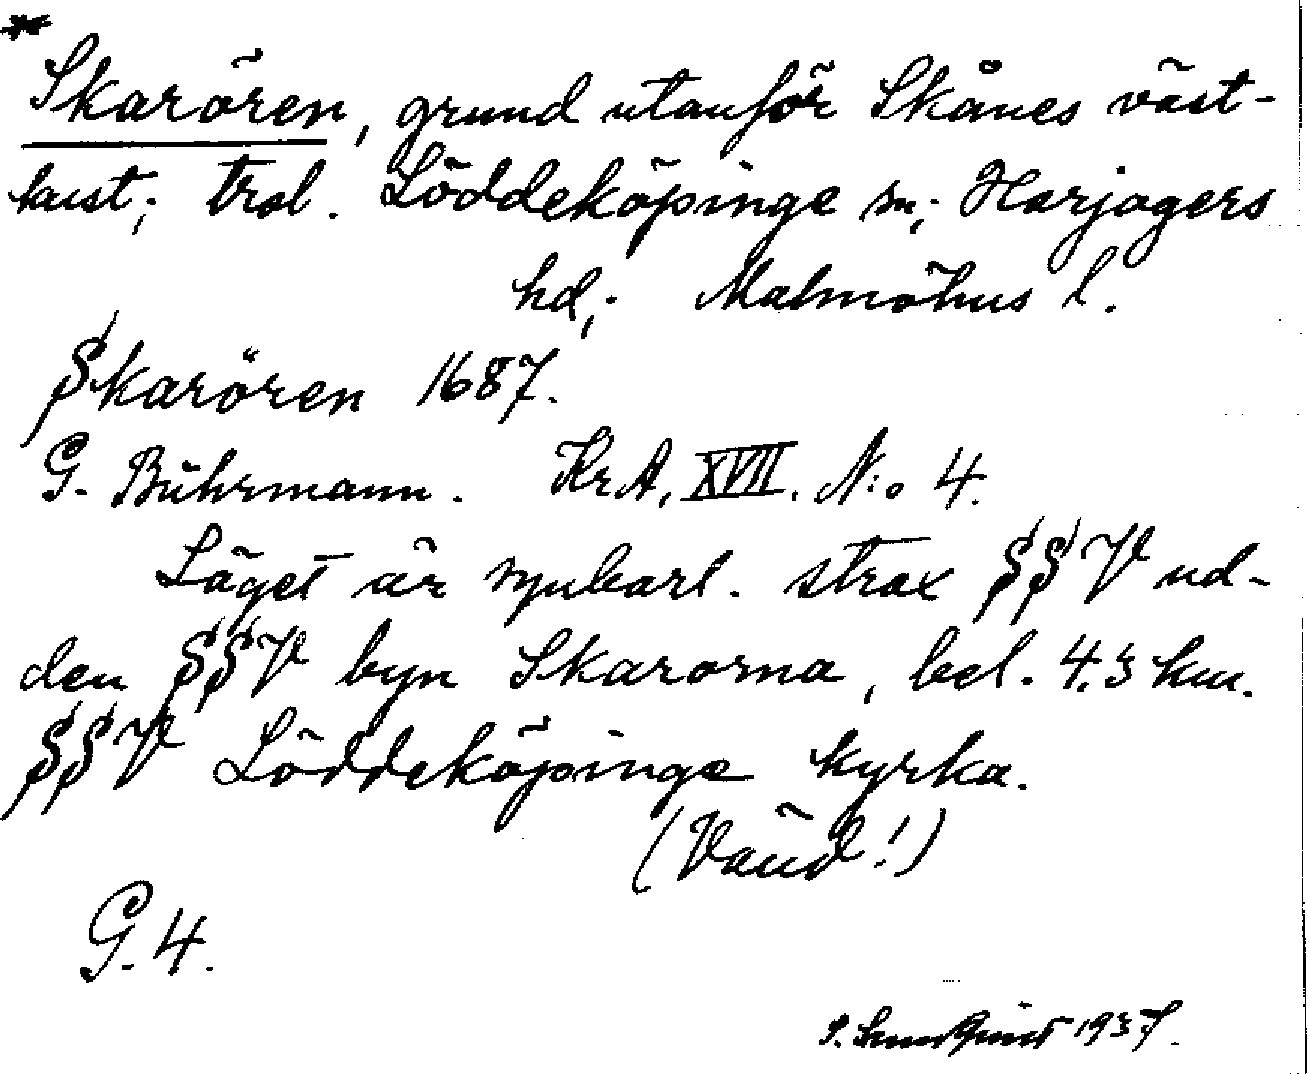 *
Skarören, grund utanför Skånes väst-
kust; trol. Löddeköpinge sn; Harjagers
hd; Malmöhus l.
Skarören 1687.
G. Bührmann. KrA, XVII. N:o 4.
Läget är synbarl. strax SSV ud-
den SSV byn Skarorna, bel. 4.3 km.
SSV Löddeköpinge kyrka.
(Vänd!)
G. 4.
1937.